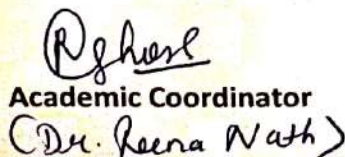 Academic Coordinator
(Dr. Reena Nath)